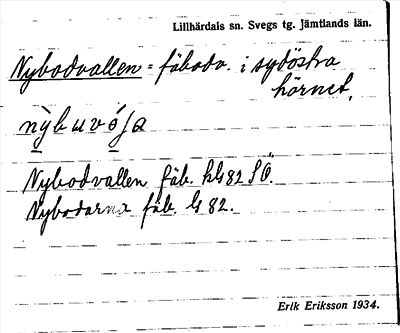 Lillhärdals sn. Svegs tg. Jämtlands län.
Nybodvallen = fäbodv. i sydöstra
hörnet.
nỳbuvóʃa
Nybodvallen fäb. kbl 82 SÖ.
Nybodarna fäb. bl 82.
Erik Eriksson 1934.